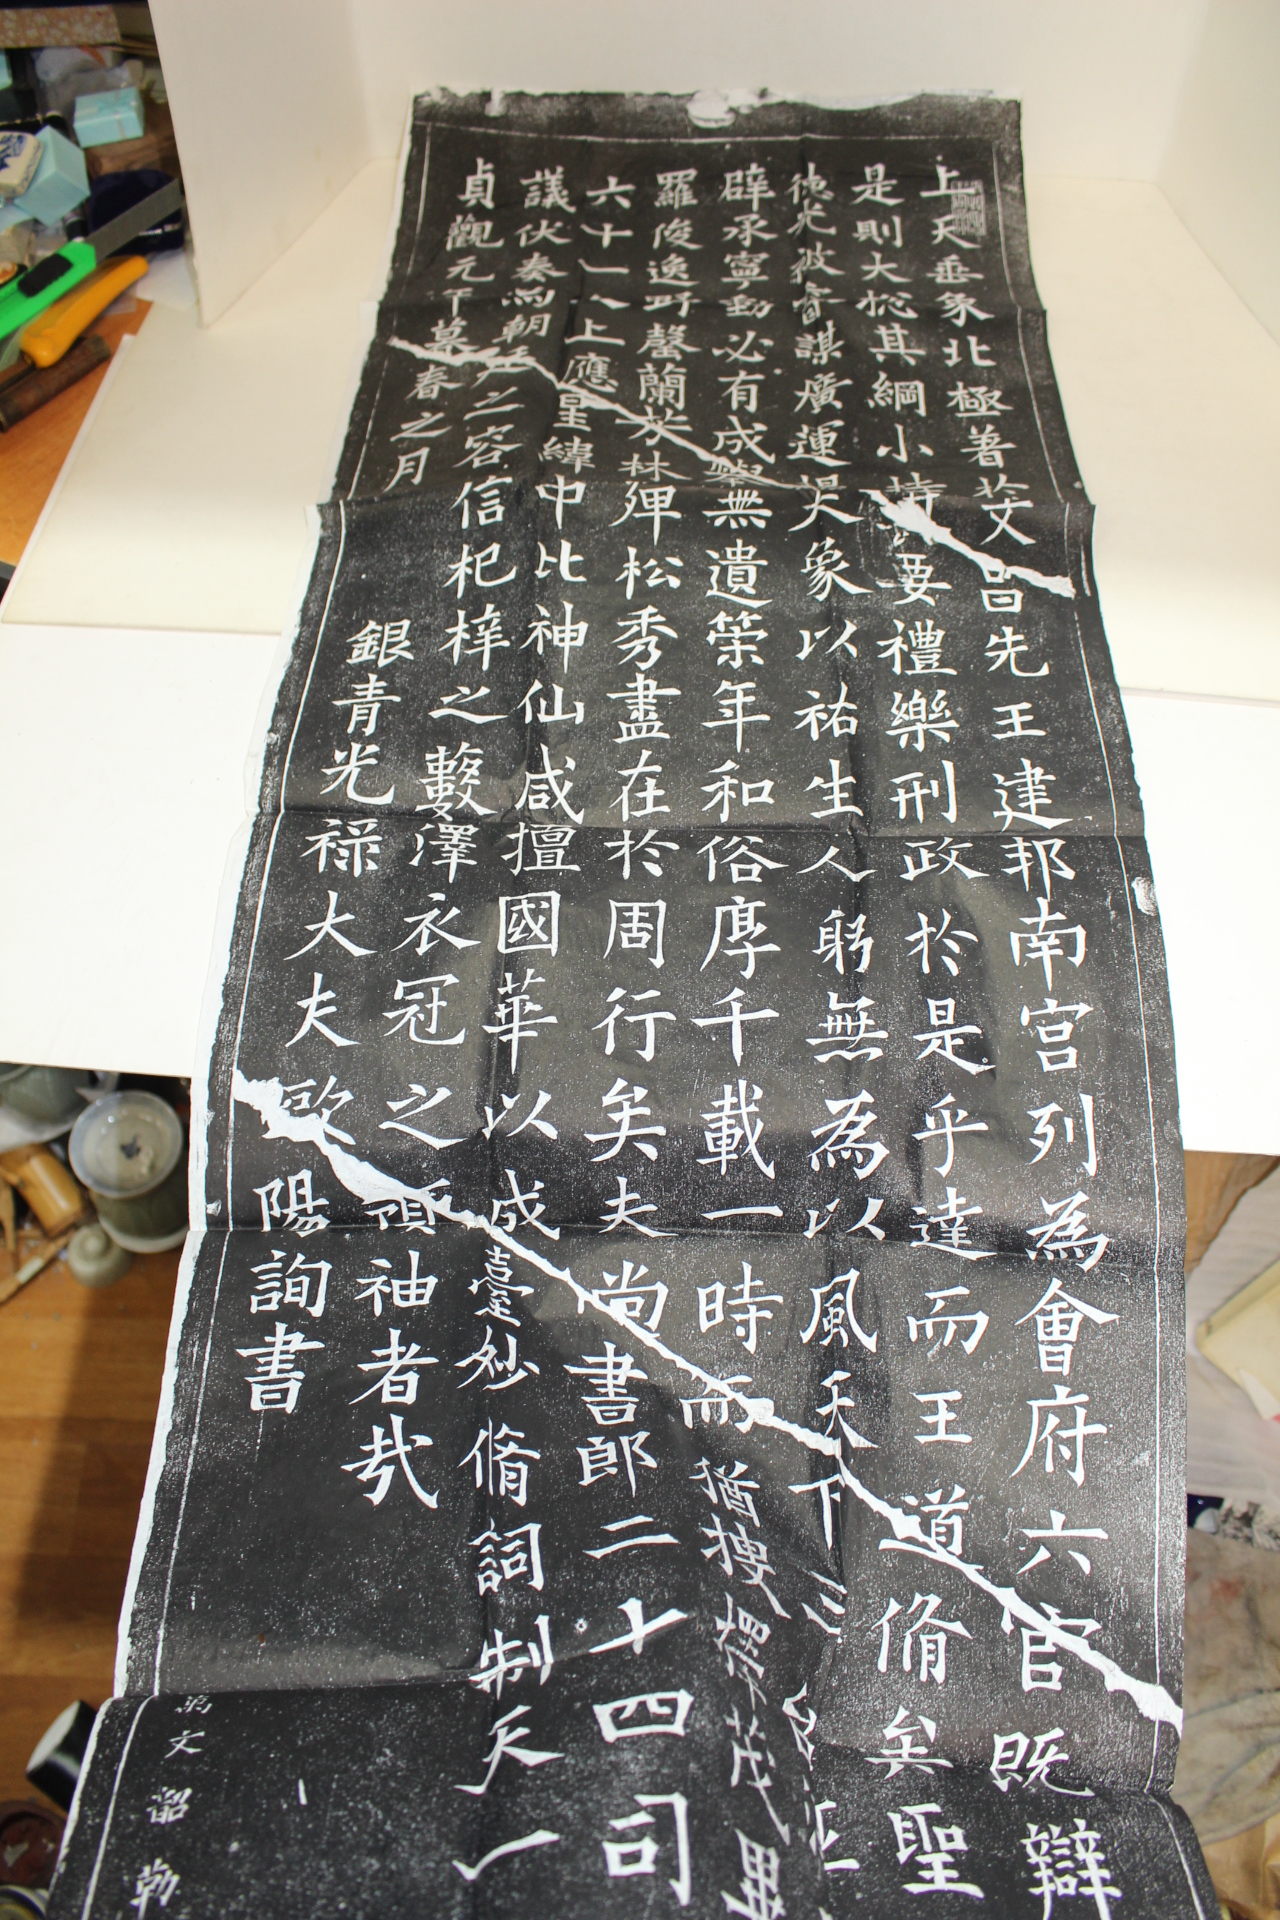 上天垂象北極著於文昌先王建邦南宮列為會府六官既辯
是則大捴其綱小持要禮樂刑政於是乎達而王道脩矣聖
德光被睿謀廣運昊象以祐生人躬無為以風天下
辟承寧動必有成舉無遺筞年和俗厚千載一時而猶搜擇茂異
羅俊逸野馨蘭芳林殫松秀盡在於周行矣夫尚書郎二十四司
六十一人上應星緯中比神仙咸擅國華以成臺妙脩詞制天一
議伏奏朝廷之容信杞梓之藪澤衣冠之領袖者㢤
貞觀元年暮春之月
銀青光祿大夫歐陽詢書
文韶勒